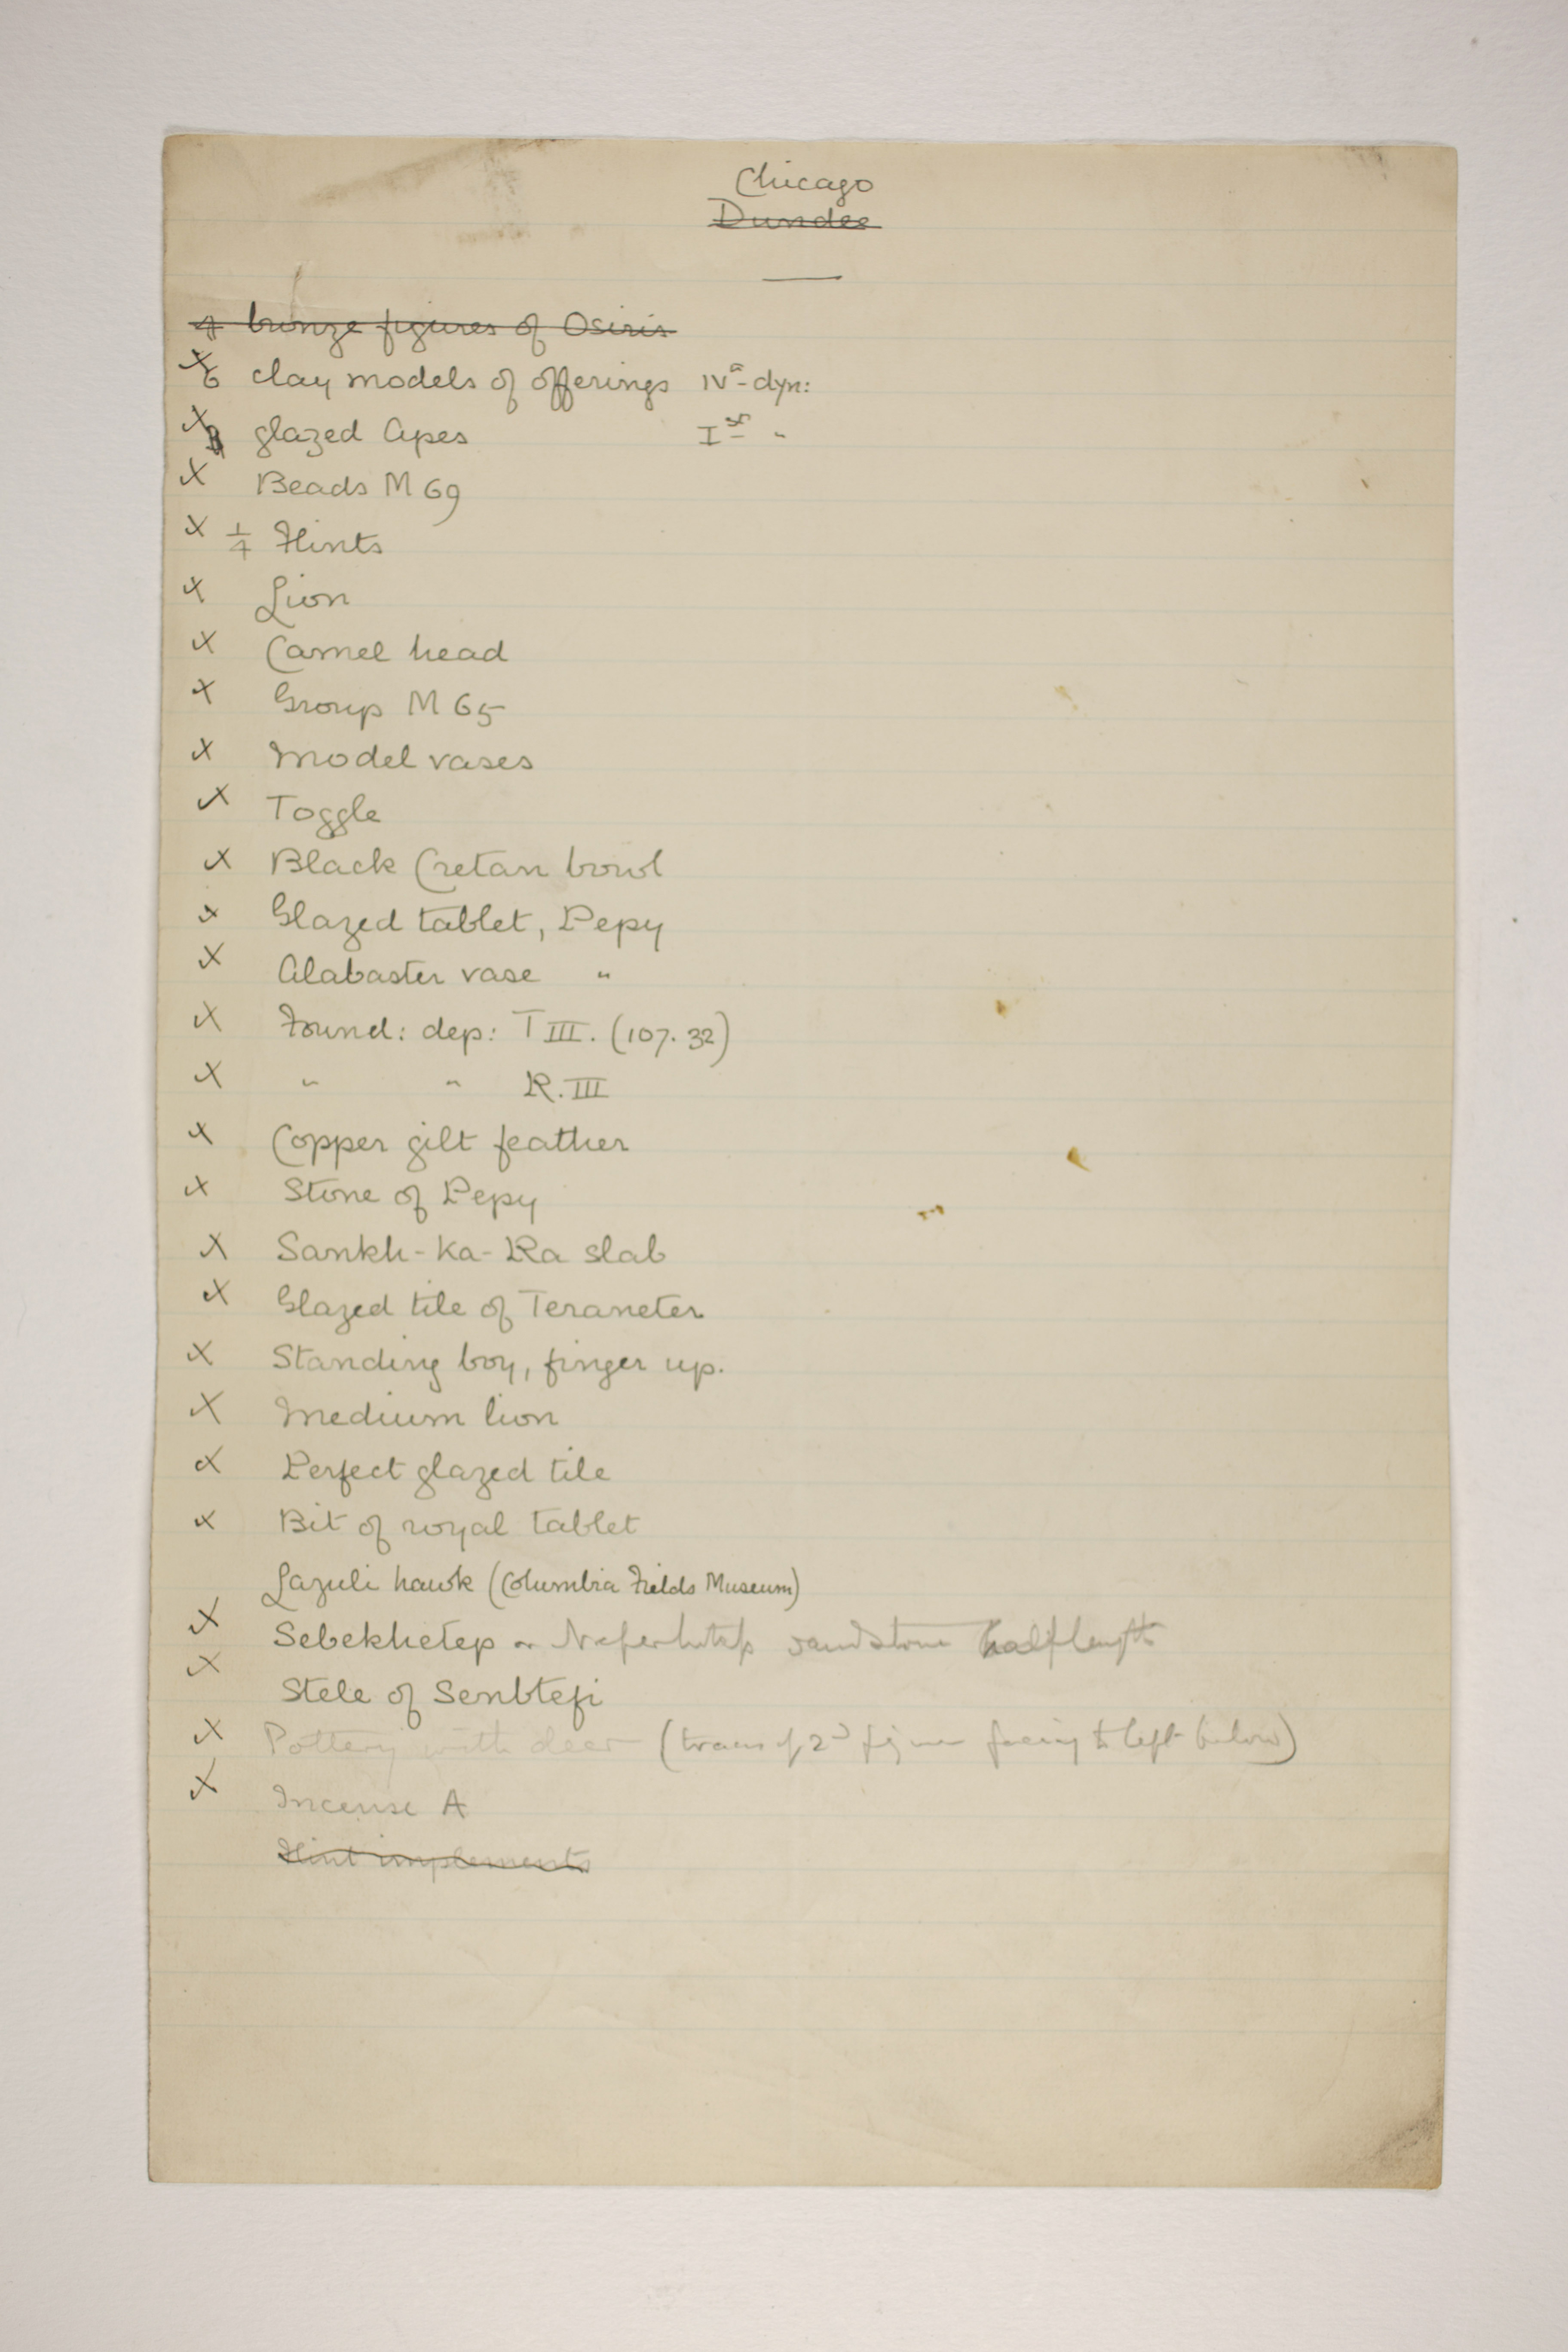 Chicago
Dundee
4 bronze figures of Osiris
x 6 clay models of offerings IVth dyn:
x glazed Apes Ist "
x Beads M 69
x 1/4 Flints
x Lion
x Camel head
x Group M 65
x Model vases
x Toggle
x Black Cretan bowl
x Glazed tablet, Pepy
x Alabaster vase "
x Found: dep: T III. (107. 32)
x " " R. III
x Copper gilt feather
x Stone of Pepy
x Sankh-Ka-Ra slab
x Glazed tile of Teraneter
x Standing boy, finger up.
x Medium lion
x Perfect glazed tile
x Bit of royal tablet
Lazuli hawk (Columbia Fields Museum)
x Sebekhetep or Neferhetep sandstone half length
x Stele of Senbtefi
x Pottery with deer (traces of 2d figure facing to left below)
x Incense A
Flint implements